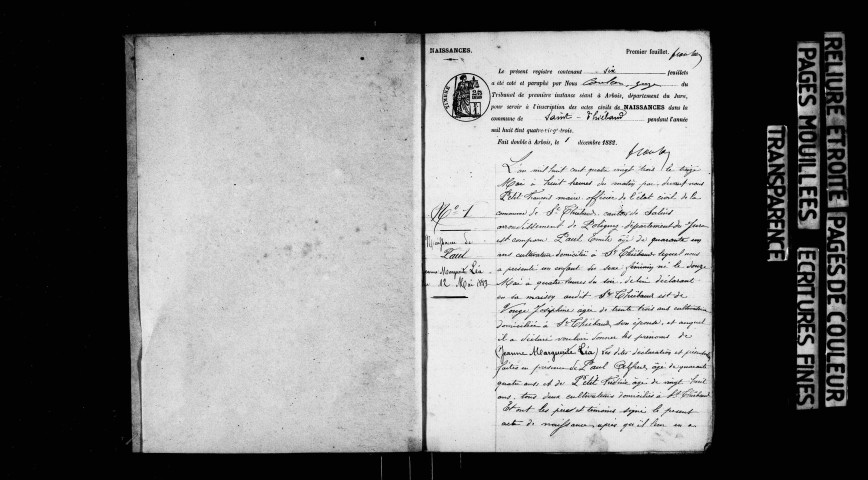 NAISSANCES.
Premier feuillet.
Le présent registre contenant six feuillets
a été coté et paraphé par Nous juge du
Tribunal de première instance séant à Arbois, département du Jura,
pour servir à l'inscription des actes civils de NAISSANCES dans la
commune de Saint-Thiébaud pendant l'année
mil huit cent quatre-vingt-trois.
Fait double à Arbois, le 1 décembre 1882.
L'an mil huit cent quatre vingt trois le treize
Mai à huit heures du matin par devant nous
Petit François maire officier de l'état civil de la
commune de St Thiébaud, canton de Salins
arrondissement de Poligny, département du Jura
est comparu Paul Emile âgé de quarante un
ans cultivateur domicilié à St Thiébaud lequel nous
a présenté un enfant du sexe féminin né le douze
Mai à quatre heures du soir de lui déclarant
en sa maison audit St Thiébaud et de
Vouge Joséphine agée de trente trois ans cultivatrice
domiciliée à St Thiébaud, son épouse, et auquel
il a déclaré vouloir donner les prénoms de
(Jeanne Marguerite Léa) Les dites déclaration et présentation
faites en présence de Paul Alfred, âgé de quarante
quatre ans et de Petit âgé de vingt huit
ans, tous deux cultivateurs domiciliés à St Thiébaud
Et ont les père et témoins signé le présent
acte de naissance, après qu'il leur en a
No 1
Naissance de
Paul
Jeanne Marguerite Léa
12 Mai 1883
RELIURE ÉTROITE PAGES DE COULEUR
PAGES MOUILLÉES ÉCRITURES FINES
TRANSPARENCE